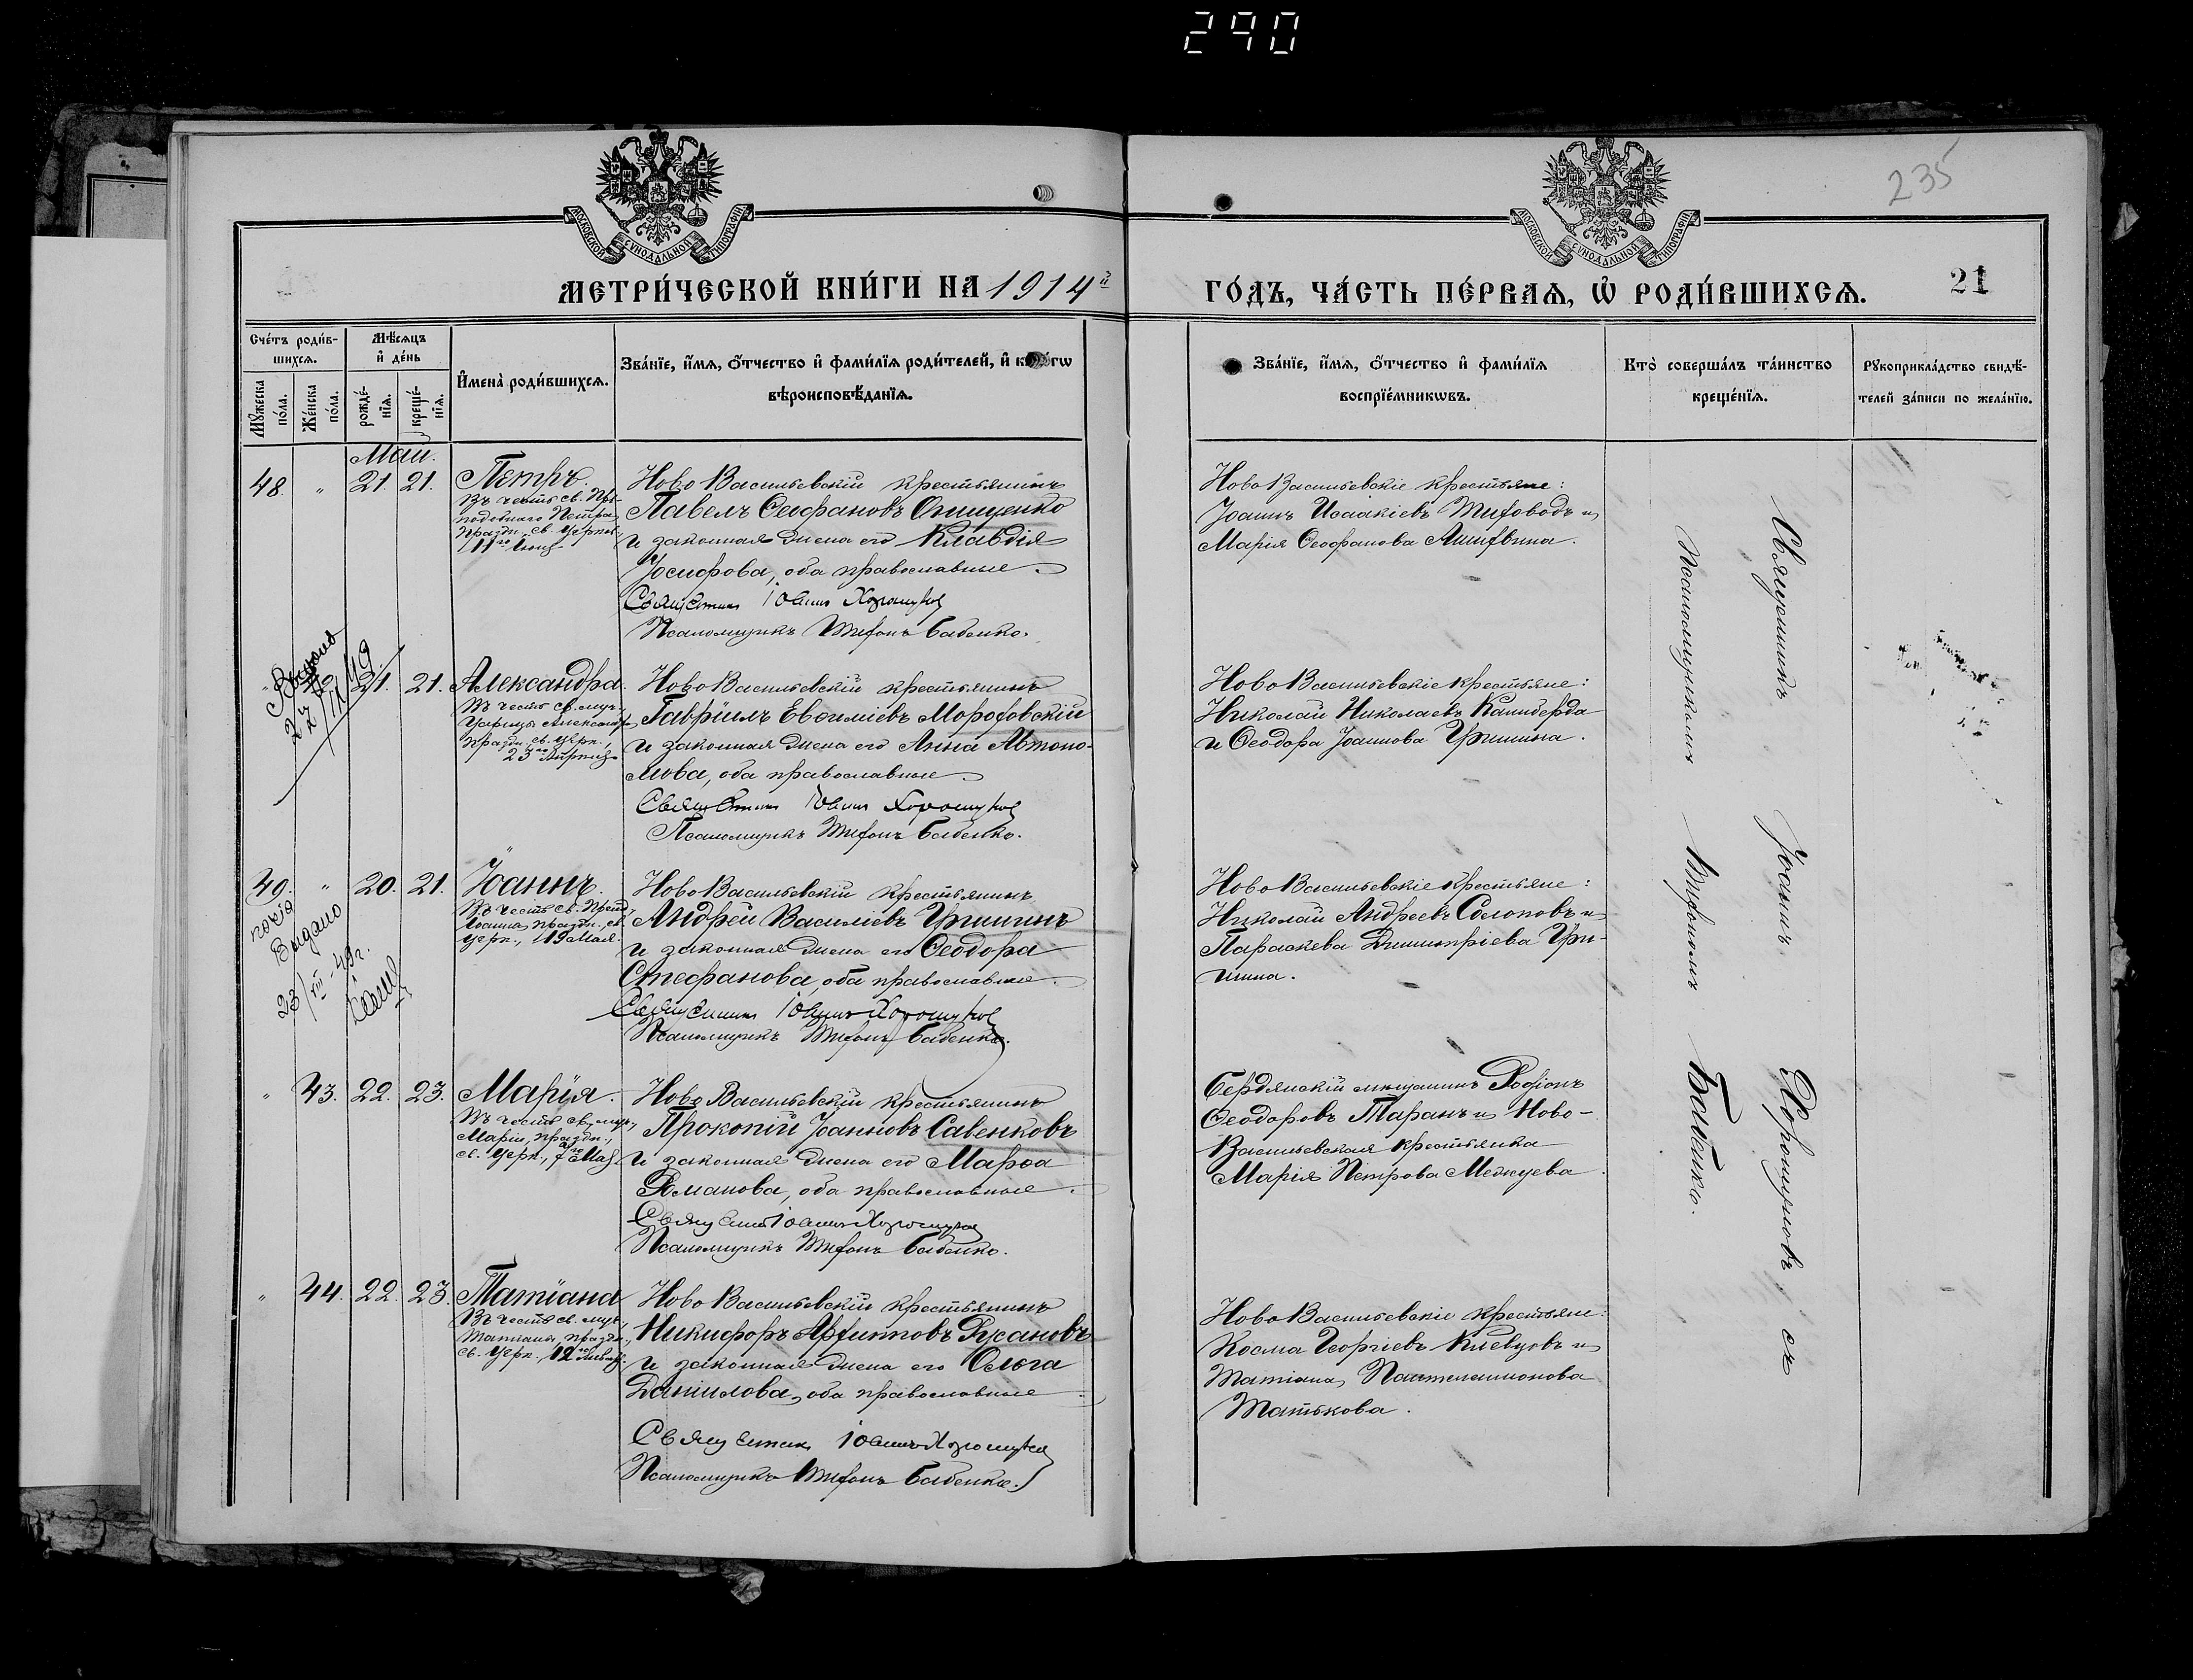 290
235
МОСКОВСКОЙ СУНОДАЛЬНОЙ ТИПОГРАФІИ
МОСКОВСКОЙ СУНОДАЛЬНОЙ ТИПОГРАФІИ
МЕТРИ́ЧЕСКОЙ КНИ́ГИ НА 1914й
ГО́ДЪ, ЧА́СТЬ ПЕ́РВАѦ, Ѡ҆ РОДИ́ВШИХСѦ.
21
Сче́тъ роди́в-
шихсѧ.
Мѣ́сѧцъ
и҆ де́нь
Мꙋ́жеска
по́ла.
Же́нска
по́ла.
рожде́-
нїѧ.
креще́-
нїѧ.
И҆мена̀ роди́вшихсѧ.
Зва́нїе, и҆́мѧ, ѻ҆́тчество и҆ фами́лїѧ роди́телей, и҆
вѣроисповѣ́данїѧ.
Зва́нїе, и҆́мѧ, ѻ҆́тчество и҆ фами́лїѧ
воспрїе́мникѡвъ.
Кто̀ соверша́лъ та́инство
креще́нїѧ.
Рꙋкоприкла́дство свидѣ́-
телей за́писи по жела́нїю.
Май.
48. " 21. 21. Петръ.
Въ честь св. Пре-
подобнаго Петра,
праздн. св. Церков.
Ново Васильевскій крестьянинъ
Павелъ Ѳеофановъ Онищенко
и законная жена его Клавдія
Іосифова, оба православные.
Священникъ Іоаннъ Хорошунов
Псаломщикъ Тифонъ Бабенко.
Ново Васильевскіе крестьяне:
Іоаннъ Исаакіевъ и
Марія Ѳеофанова
21. 21. Александра.
Въ честь св. муч.
Царицы Александр.
праздн. св. Церк.,
23го Апрѣля
Ново Васильевскій крестьянинъ
Гавріилъ Евѳиміевъ Морозовскій
и законная жена его Анна Автоно-
мова, оба православные
Священникъ Іоаннъ Хорошунов
Псаломщикъ Тифонъ Бабенко.
Ново Васильевскіе крестьяне:
Николай Николаевъ Калиберда
и Ѳеодора Іоаннова Гришина.
49. " 20. 21. Іоаннъ.
Въ честь св. Преп.
Іоанна, праздн. св.
Церк., 19 Мая.
Выдано
Ново Васильевскій крестьянинъ
Андрей Василіевъ Гришинъ
и законная жена его Ѳеодора
Стефанова, оба православные.
Священникъ Іоаннъ Хорошунов
Псаломщикъ Тифонъ Бабенко.
Ново Васильевскіе крестьяне:
Николай Андреевъ Солоповъ и
Параскева Димитріева Гри-
шина.
" 43. 22. 23. Марія.
Въ честь св. муч.,
Маріи, праздн.,
св. Церк., 7го Мая
Ново Васильевскій крестьянинъ
Прокопій Іоанновъ Савенковъ
и законная жена его Марѳа
Романова, оба православные.
Священникъ Іоаннъ Хорошунов
Псаломщикъ Тифонъ Бабенко.
Бердянскій мѣщанинъ Родіонъ
Ѳеодоровъ Таранъ и Ново-
Васильевская крестьянка
Марія Петрова Межуева.
" 44. 22. 23. Татіана
Въ честь св. муч.,
Татіаны, праздн.,
св. Церк., 12го Январ.
Ново Васильевскій крестьянинъ
Никифоръ Архиповъ Русановъ
и законная жена его Ольга
Даніилова, оба православные
Священникъ Іоаннъ Хорошунов
Псаломщикъ Тифонъ Бабенко.
Ново Васильевскіе крестьяне:
Косма Георгіевъ Киевцовъ и
Татіана Пантелеимонова
Татькова.
Священникъ Іоаннъ Хорошуновъ съ
Псаломщикомъ Тифономъ Бабенко.